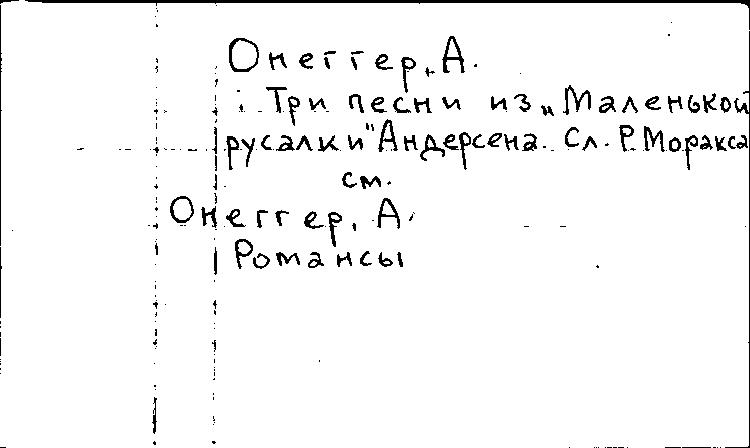 Онеггер, А.
Три песни из „Маленькой
русалки" Андерсена. Сл. Р. Моракса
см.
Онеггер, А.
Романсы